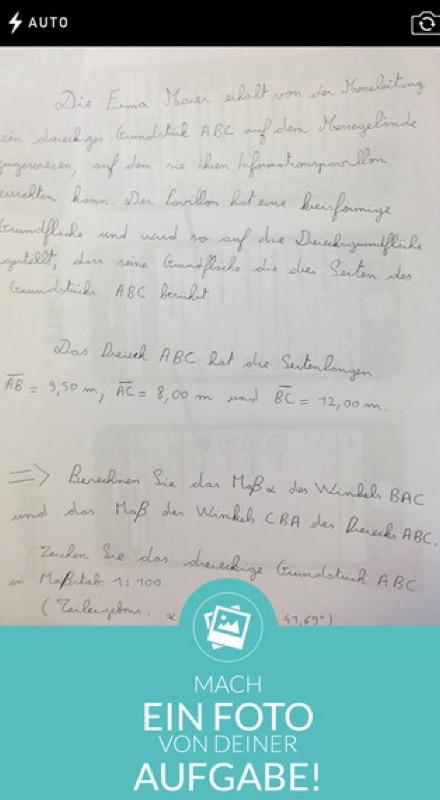 AUTO
Die Firma Maier erhält von der Messeleitung
ein dreieckiges Grundstück ABC auf dem Messegelände
zugewiesen, auf dem sie ihren Informationspavillon
errichten kann. Der Pavillon hat eine kreisförmige
Grundfläche und wird so auf die Dreiecksgrundfläche
gestellt, dass seine Grundfläche die drei Seiten des
Grundstücks ABC berührt.
Das Dreieck ABC hat die Seitenlängen
AB = 9,50 m, AC = 8,00 m und BC = 12,00 m.
=> Berechnen Sie das Maß α des Winkels BAC
und das Maß des Winkels CBA des Dreiecks ABC.
Zeichnen Sie das dreieckige Grundstück ABC
im Maßstab 1:100
(Teilergebnis: α 41,69°)
MACH
EIN FOTO
VON DEINER
AUFGABE!